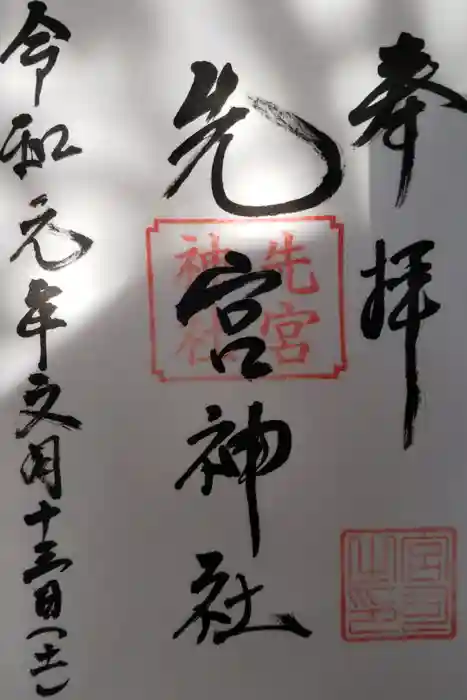 奉拝
先宮神社
先宮
神社
令和元年文月十三日(土)